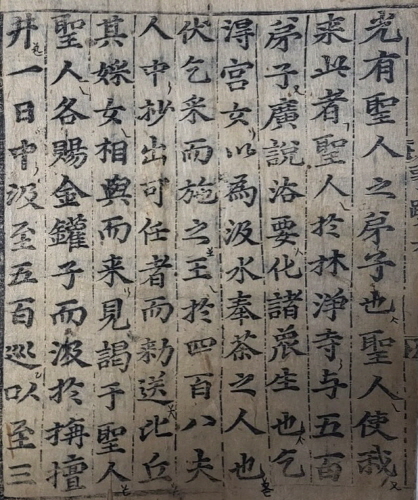 光有聖人之苐子也聖人使我
来此者聖人於林淨寺与五百
苐子廣說法要化諸衆生也乞
淂宮女以為汲水奉茶之人也
伏乞采而施之王於四百八夫
人中抄出可任者而勑送比丘
其婇女相與而来見謁于聖人
聖人各賜金鑵子而汲於栴檀
井一日中汲至五百巡以至三